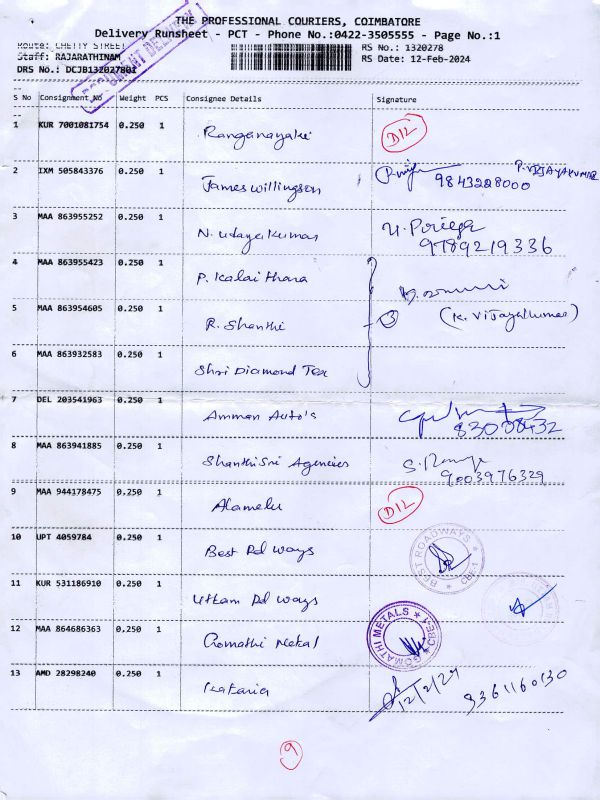 THE PROFESSIONAL COURIERS, COIMBATORE
Delivery Runsheet - PCT - Phone No.:0422-3505555 - Page No.:1
Route: CHETTY STREET RS No.: 1320278
Staff: RAJARATHINAM RS Date: 12-Feb-2024
DRS No.: DCJB132027801
S No Consignment No Weight PCS Consignee Details Signature
1 KUR 7001081754 0.250 1 Ranganayaki D12
2 IXM 505843376 0.250 1 James Willingson P. VIJAYAKUMAR
9843228000
3 MAA 863955252 0.250 1 N. Udaya Kumar U. Poriega
9789219336
4 MAA 863955423 0.250 1 P. Kalaithara
5 MAA 863954605 0.250 1 R. Shanthi 3 (K. Vijayakumar)
6 MAA 863932583 0.250 1 Shri Diamond Tex
7 DEL 203541963 0.250 1 Amman Auto's
8 MAA 863941885 0.250 1 ShanthiSri Agencies
9003976329
9 MAA 944178475 0.250 1 Alamelu D12
10 UPT 4059784 0.250 1 Best Rd Ways BEST ROADWAYS CBE-1
11 KUR 531186910 0.250 1 Uttam Rd Ways
12 MAA 864686363 0.250 1 Gomathi Metal GOMATHI METALS CBE-1
13 AMD 28298240 0.250 1 Kataria 12/2/24 9361160130
9